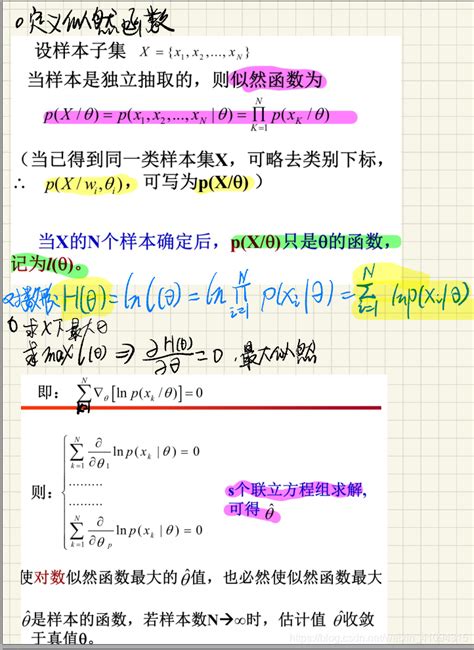 定义似然函数
设样本子集 X = {x₁, x₂, ..., x_N}
当样本是独立抽取的，则似然函数为
p(X / θ) = p(x₁, x₂, ..., x_N | θ) = ∏_{K=1}^{N} p(x_K / θ)
（当已得到同一类样本集X，可略去类别下标，
∴ p(X / w_i, θ_i)，可写为p(X/θ) ）
当X的N个样本确定后，p(X/θ)只是θ的函数，
记为l(θ)。
对数形: H(θ) = ln l(θ) = ln ∏_{i=1}^{N} p(x_i | θ) = ∑_{i=1}^{N} ln p(x_i | θ)
求X下最大θ
求max l(θ) ⇒ ∂H(θ)/∂θ = 0 . 最大似然
即: ∑^{N} ∇_θ [ln p(x_k / θ)] = 0
∑_{k=1}^{N} ∂/∂θ₁ ln p(x_k | θ) = 0
.........
则: s个联立方程组求解,
......... 可得 θ̂
∑_{k=1}^{N} ∂/∂θ_p ln p(x_k | θ) = 0
使对数似然函数最大的θ̂值，也必然使似然函数最大
θ̂是样本的函数，若样本数N→∞时，估计值 θ̂收敛
于真值θ。